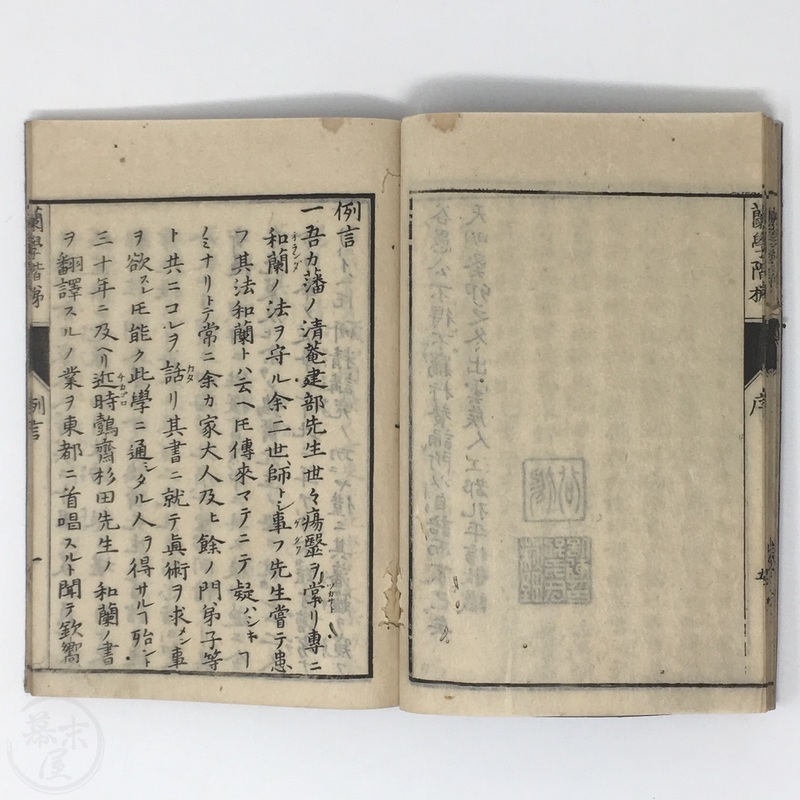 蘭學階梯
序
例言
一吾カ藩ノ清菴建部先生世々瘍毉ヲ掌リ專ニ
和蘭ノ法ヲ守ル余二世師トシ事フ先生嘗テ患
フ其法和蘭トハ云ヘ𪜈傳來マテニテ疑ハシキヿ
ノミナリトテ常ニ余カ家大人及ヒ餘ノ門弟子等
ト共ニコレヲ話リ其書ニ就テ眞術ヲ求メン事
ヲ欲スレ𪜈能ク此學ニ通シタル人ヲ得サルヿ殆ント
三十年ニ及ヘリ近時鷧齋杉田先生ノ和蘭ノ書
ヲ翻譯スルノ業ヲ東都ニ首唱スルト聞テ欽嚮
蘭學階梯
例言
一
幕末屋